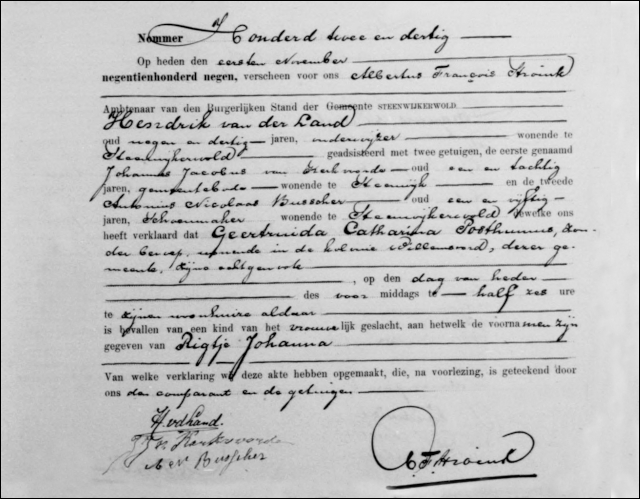 Nommer Honderd twee en dertig
Op heden den eersten November
negentienhonderd negen, verscheen voor ons Albertus François Stroink
Ambtenaar van den Burgerlijken Stand der Gemeente STEENWIJKERWOLD.
Hendrik van der Land
oud negen en dertig jaren, onderwijzer wonende te
Steenwijkerwold geadsisteerd met twee getuigen, de eerste genaamd
Johannes Jacobus van Kerkvoorde oud een en tachtig
jaren, gemeentebode wonende te Steenwijk en de tweede
Antonius Nicolaas Busscher oud een en vijftig
jaren, Schoenmaker wonende te Steenwijkerwold, dewelke ons
heeft verklaard dat Geertruida Catharina Posthumus, zon-
der beroep, wonende in de kolonie Willemsoord, dezer ge-
meente, zijne echtgenote
, op den dag van heden
des voor middags te half zes ure
te zijnen woonhuize aldaar
is bevallen van een kind van het vrouwelijk geslacht, aan hetwelk de voornamen zijn
gegeven van Rigtje Johanna
Van welke verklaring wij deze akte hebben opgemaakt, die, na voorlezing, is geteekend door
ons den comparant en de getuigen
H. vd Land.
J. J. v. Kerkvoorde
A N Busscher
A. F. Stroink